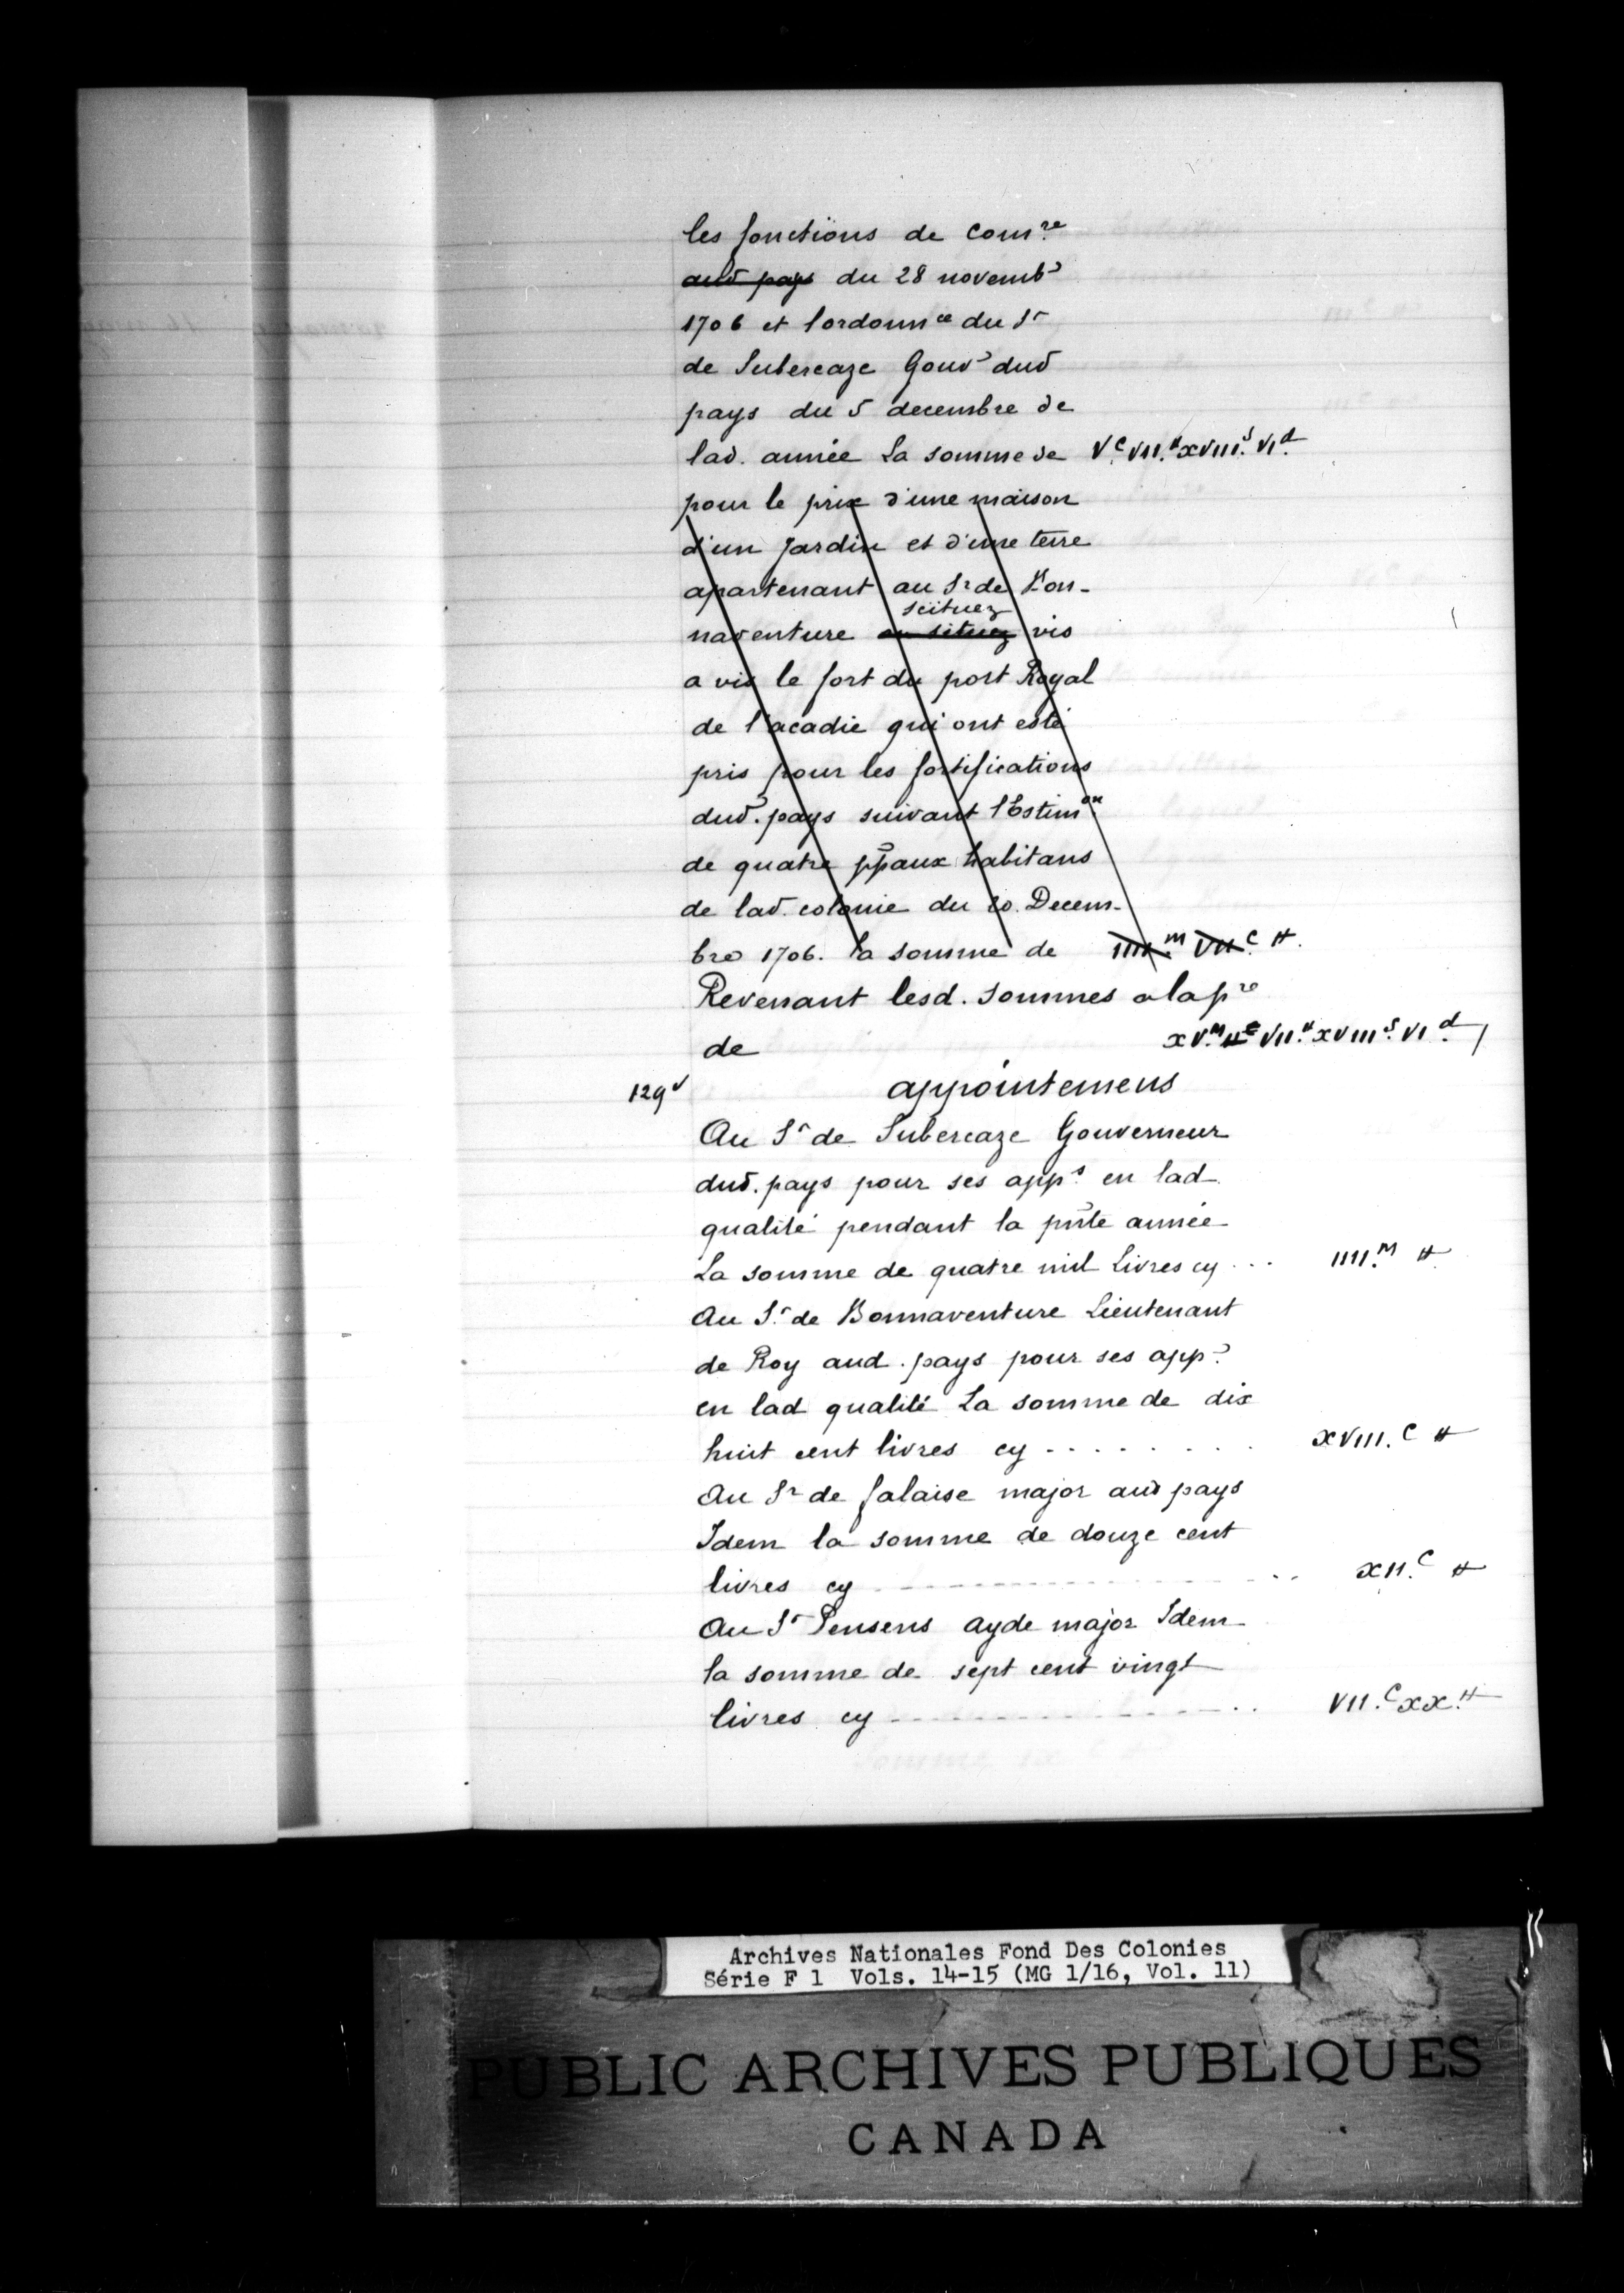 les fonctions de com.re
aud pays du 28 novemb
1706 et lordonnce du Sr
de Subercaze Gouv dud
pays du 5 decembre de
lad. année La somme de Vc VII.# XVIII.s VI.d
pour le prix d'une maison
d'un Jardin et d'une terre
apartenant au Sr de Bon-
scituez
naventure situez vis
a vis le fort du port Royal
de l'acadie qui ont esté
pris pour les fortifications
dud. pays suivant l'Estimon
de quatre ppaux habitans
de lad. colonie du 20. Decem-
bre 1706. la somme de IIII.M VII.C #.
Revenant lesd. sommes a la pre
de XV.M IIc VII.# XVIII.s VI.d
129v appointemens
Au Sr de Subercaze Gouverneur
dud. pays pour ses apps en lad
qualité pendant la pnte année
La somme de quatre mil Livres cy ... IIII.M #
Au Sr de Bonnaventure Lieutenant
de Roy aud. pays pour ses app.
en lad qualité La somme de dix
huit cent livres cy ........ XVIII.C #
Au Sr de falaise major aud pays
Idem la somme de douze cent
livres cy ........ XII.C #
Au Sr Pensens ayde major Idem
la somme de sept cent vingt
livres cy ........ VII.C XX.#
Archives Nationales Fond Des Colonies
Série F 1 Vols. 14-15 (MG 1/16, Vol. 11)
PUBLIC ARCHIVES PUBLIQUES
CANADA